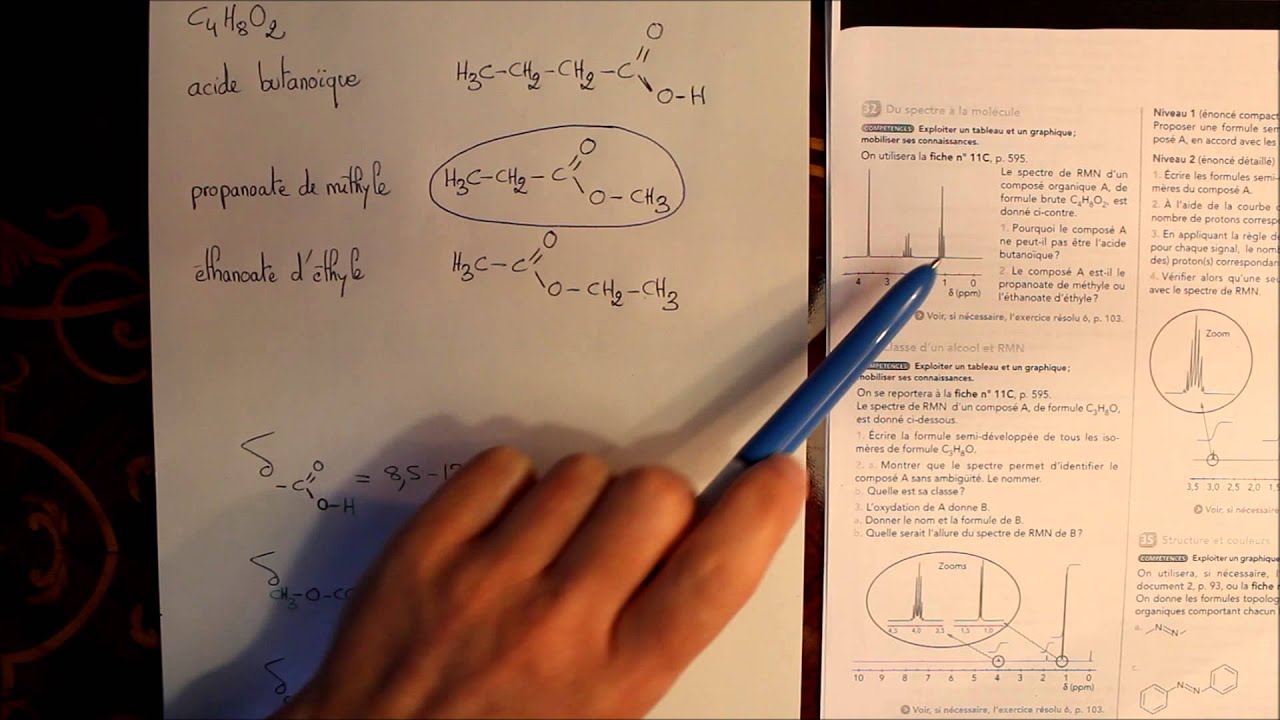 C4H8O2
acide butanoïque
H3C-CH2-CH2-C
O
O-H
propanoate de méthyle
H3C-CH2-C
O
O-CH3
éthanoate d'éthyle
H3C-C
O
O-CH2-CH3
δ -C
O
O-H
= 8,5-12
δ CH3-O-CO
δ
32 Du spectre à la molécule
COMPÉTENCES Exploiter un tableau et un graphique ;
mobiliser ses connaissances.
On utilisera la fiche n° 11C, p. 595.
Le spectre de RMN d'un
composé organique A, de
formule brute C4H8O2, est
donné ci-contre.
1. Pourquoi le composé A
ne peut-il pas être l'acide
butanoïque ?
2. Le composé A est-il le
propanoate de méthyle ou
l'éthanoate d'éthyle ?
4 3 1 0
δ (ppm)
Voir, si nécessaire, l'exercice résolu 6, p. 103.
lasse d'un alcool et RMN
COMPÉTENCES Exploiter un tableau et un graphique ;
mobiliser ses connaissances.
On se reportera à la fiche n° 11C, p. 595.
Le spectre de RMN d'un composé A, de formule C3H8O,
est donné ci-dessous.
1. Écrire la formule semi-développée de tous les iso-
mères de formule C3H8O.
2. a. Montrer que le spectre permet d'identifier le
composé A sans ambiguïté. Le nommer.
b. Quelle est sa classe ?
3. L'oxydation de A donne B.
a. Donner le nom et la formule de B.
b. Quelle serait l'allure du spectre de RMN de B ?
Zooms
4,5 4,0 3,5 1,5 1,0
10 9 8 7 6 5 4 3 2 1 0
δ (ppm)
Voir, si nécessaire, l'exercice résolu 6, p. 103.
Niveau 1 (énoncé compact
Proposer une formule sem
posé A, en accord avec les
Niveau 2 (énoncé détaillé)
1. Écrire les formules semi-
mères du composé A.
2. À l'aide de la courbe d
nombre de protons corresp
3. En appliquant la règle de
pour chaque signal, le nom
des) proton(s) correspondan
4. Vérifier alors qu'une seu
avec le spectre de RMN.
Zoom
3,5 3,0 2,5 2,0 1,5
Voir, si nécessaire
35 Structure et couleurs
COMPÉTENCES Exploiter un graphique
On utilisera, si nécessaire, l
document 2, p. 93, ou la fiche
On donne les formules topolog
organiques comportant chacun
a.
N=N
c.
N=N